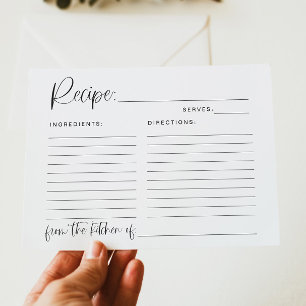 Recipe:
SERVES:
INGREDIENTS: DIRECTIONS:
from the kitchen of